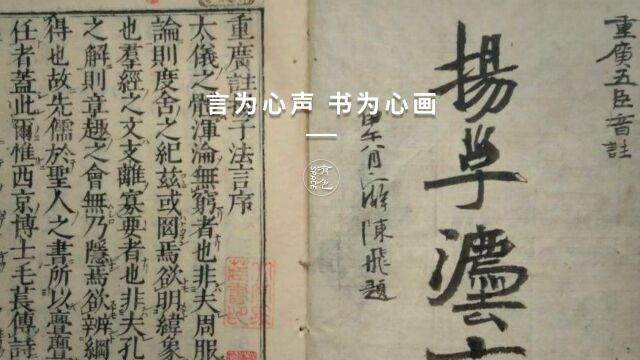 言为心声 书为心画
SPACE
重廣五臣音註
揚子灋
陳飛題
重廣註揚子法言序
太儀之體渾淪無窮者也非夫周服
論則度舍之紀茲或罔焉欲明緯象
也羣經之文支離寡要者也非夫孔
之解則章趣之會無乃隱焉欲辨綱
得也故先儒於聖人之書所以亹亹
任者蓋此爾惟西京博士毛萇傳詩